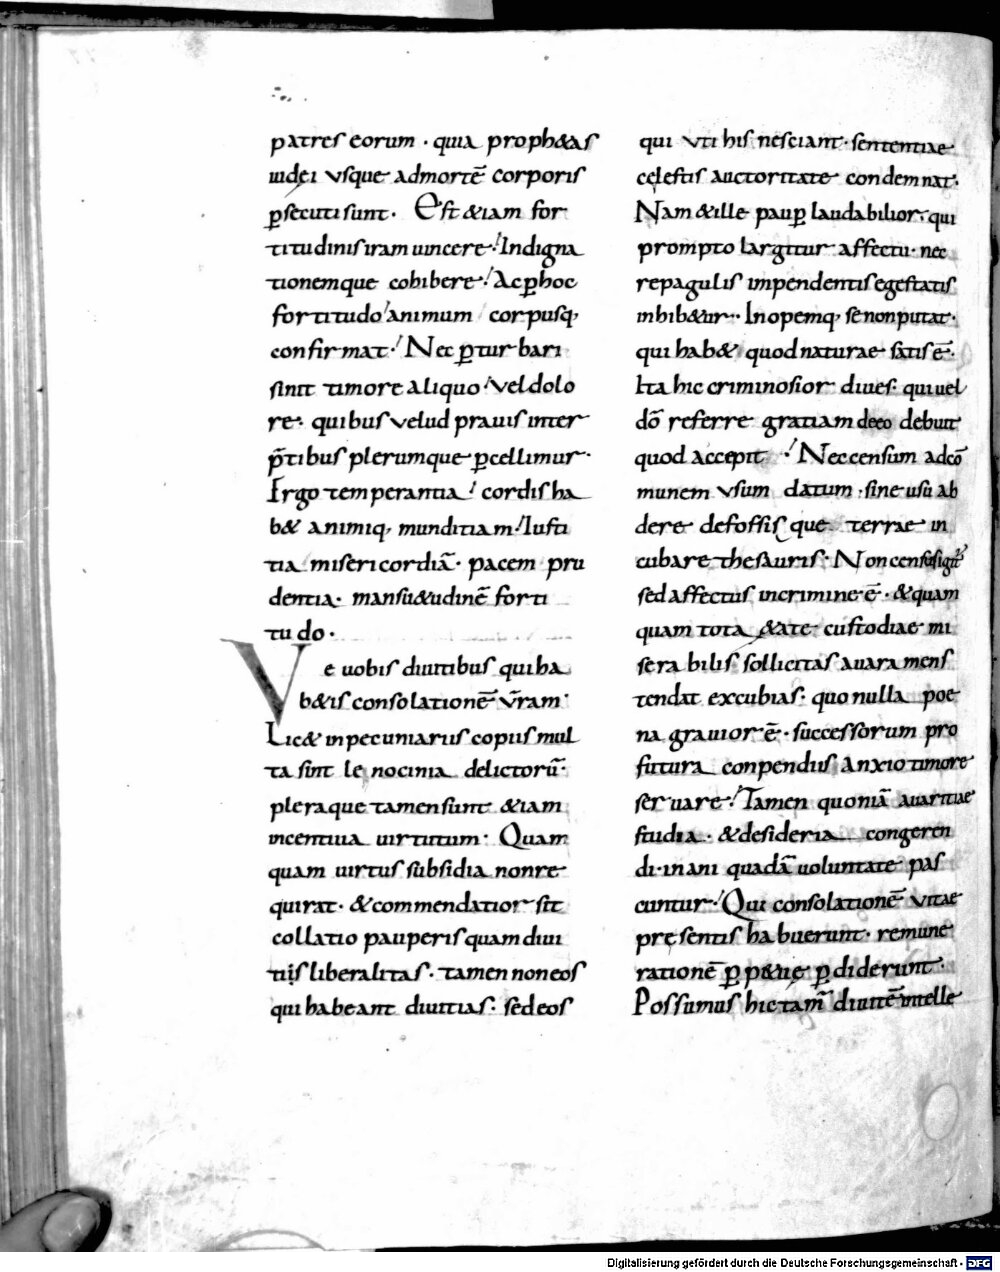 patres eorum · quia proph&as
iudei vsque admortē corporis
ꝑsecuti sunt · Est &iam for
titudinis iram uincere · Indigna
tionemque cohibere · Ac ꝑ hoc
fortitudo animum corpusq;
confirmat · Nec ꝑturbari
sinit timore aliquo · Vel dolo
re · quibus velud prauis inter
p̄tibus plerumque ꝑcellimur ·
Irgo temperantia · cordis ha
b& animiq; munditiam · Iusti
tia misericordiā · pacem pru
dentia · mansu&udinē forti
tudo ·
Ve uobis diuitibus qui ha
b&is consolationē vr̄am ·
Lic& inpecuniariis copiis mul
ta sint lenocinia delictorū ·
pleraque tamen sunt &iam
incentiua uirtutum · Quam
quam uirtus subsidia non re
quirat · & commendatior sit
collatio pauperis quam diui
tis liberalitas · tamen non eos
qui habeant diuitias · sed eos
qui vti his nesciant · sententiae
cęlestis auctoritate condemnat ·
Nam & ille pauꝑ laudabilior · qui
prompto largitur affectu · nec
repagulis impendentis egestatis
inhib&ur · Inopemq; se non putat ·
qui hab& quod naturae satis ē ·
Ita hic criminosior diues · qui uel
dō referre gratiam deeo debuit
quod accepit · Nec censum adcō
munem vsum datum · sine usu ab
dere defossisque terrae in
cubare thesauris · Non census igit̄
sed affectus incrimine ē · & quam
quam tota &ate custodiae mi
serabilis sollicitas auara mens
tendat excubias · quo nulla poe
na grauior ē · successorum pro
futura conpendiis anxio timore
seruare · Tamen quoniā auaritiae
studia · & desideria congeren
di · inani quadā uoluntate pas
cuntur · Qui consolationē vitae
pręsentis habuerunt · remune
rationē ꝑp&uę ꝑdiderunt ·
Possumus hic tam̄ diuitē intelle
Digitalisierung gefördert durch die Deutsche Forschungsgemeinschaft - DFG